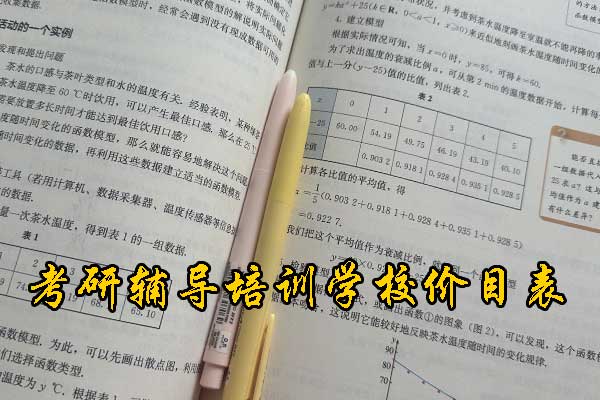 活动的一个实例
发现和提出问题
茶水的口感与茶叶类型和水的温度有关. 经验表明, 某种绿茶
茶水温度降至 60 ℃时饮用, 可以产生最佳口感. 那么在 25
需要放置多长时间才能达到最佳饮用口感?
度随时间变化的函数模型, 那么就能容易地解决这个问题.
随时间变化的数据, 再利用这些数据建立适当的函数模型
工具(若用计算机、数据采集器、温度传感器等信息
的数据.
量一次茶水温度, 得到表 1 的一组数据.
表 1
函数模型. 为此, 可以先画出散点图, 利用
们选择函数类型.
温度为 y ℃. 根据表 1
4. 建立模型
根据实际情况可知, 当 x=0 时, y=85, 可得 k=60.
为了求出温度的衰减比例 a, 可从第 2 min 的温度数据开始, 计算每
值与上一分(y−25)值的比值, 列出表 2.
表 2
x 0 1 2 3 4 5
−25 60.00 54.19 49.75 46.19 43.19 40.10
比值 0.903 2 0.918 1 0.928 4 0.935 1 0.928 5
计算各比值的平均值, 得
=1/5(0.903 2+0.918 1+0.928 4+0.935 1+0.928 5)
=0.922 7.
我们把这个平均值作为衰减比例,
能否直
一组数据代入
25 求 a? 这与
均值作为 a 建
有什么差异?
考研辅导培训学校价目表
画出函数①的图象(图 2), 可以发现, 这个函数模
这说明它能较好地反映茶水温度随时间的变化规律.
y
90
80
70